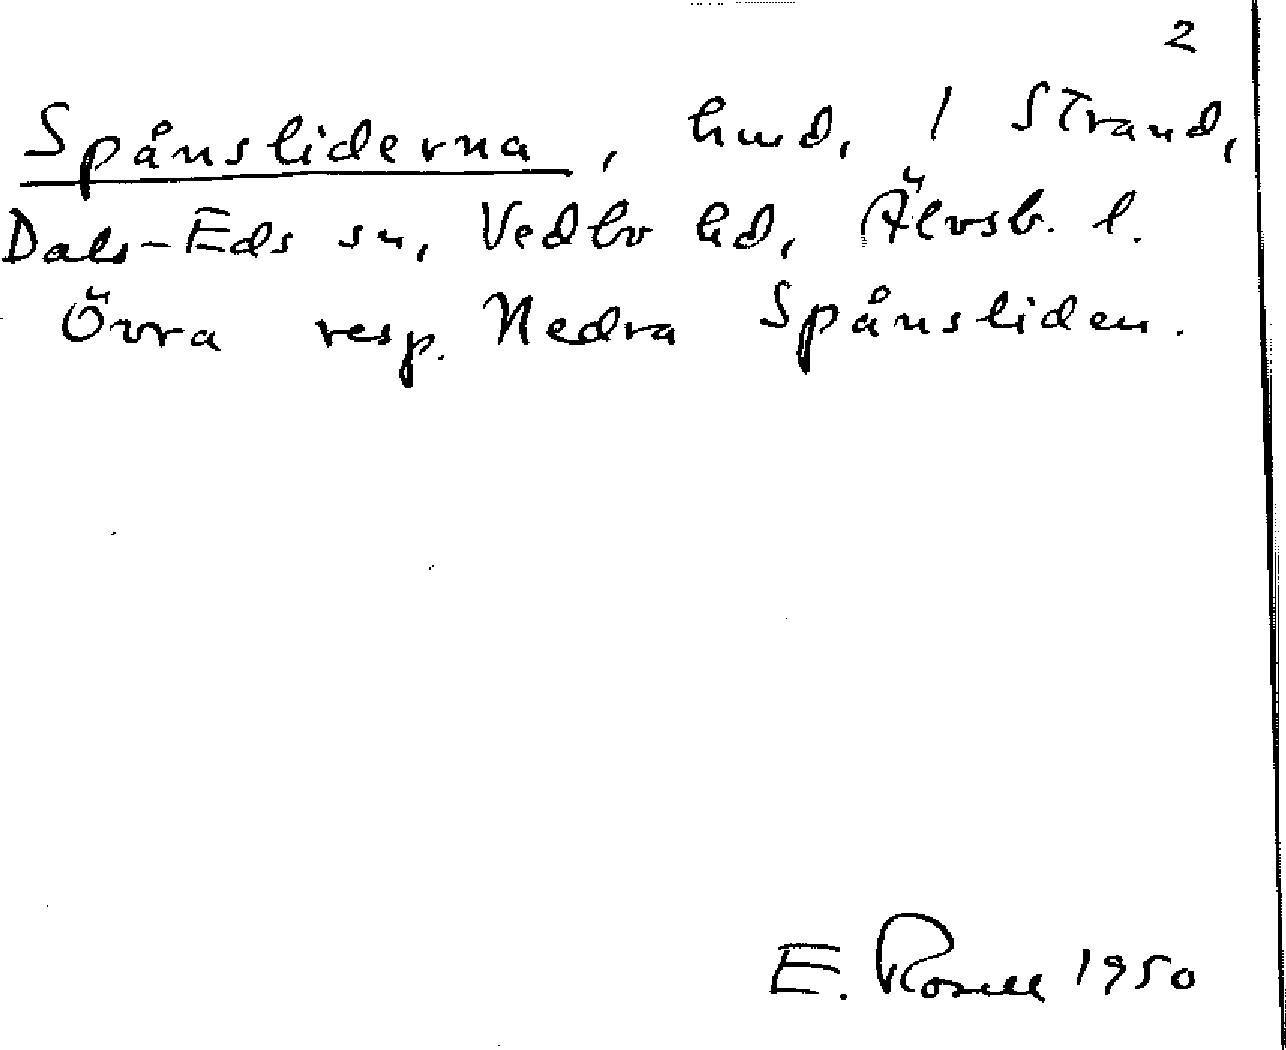 2
Spånsliderna, hmd, / Strand,
Dals-Eds sn, Vedbo hd, Älvsb. l.
Övra resp. Nedra Spånsliden.
E. Rosell 1950